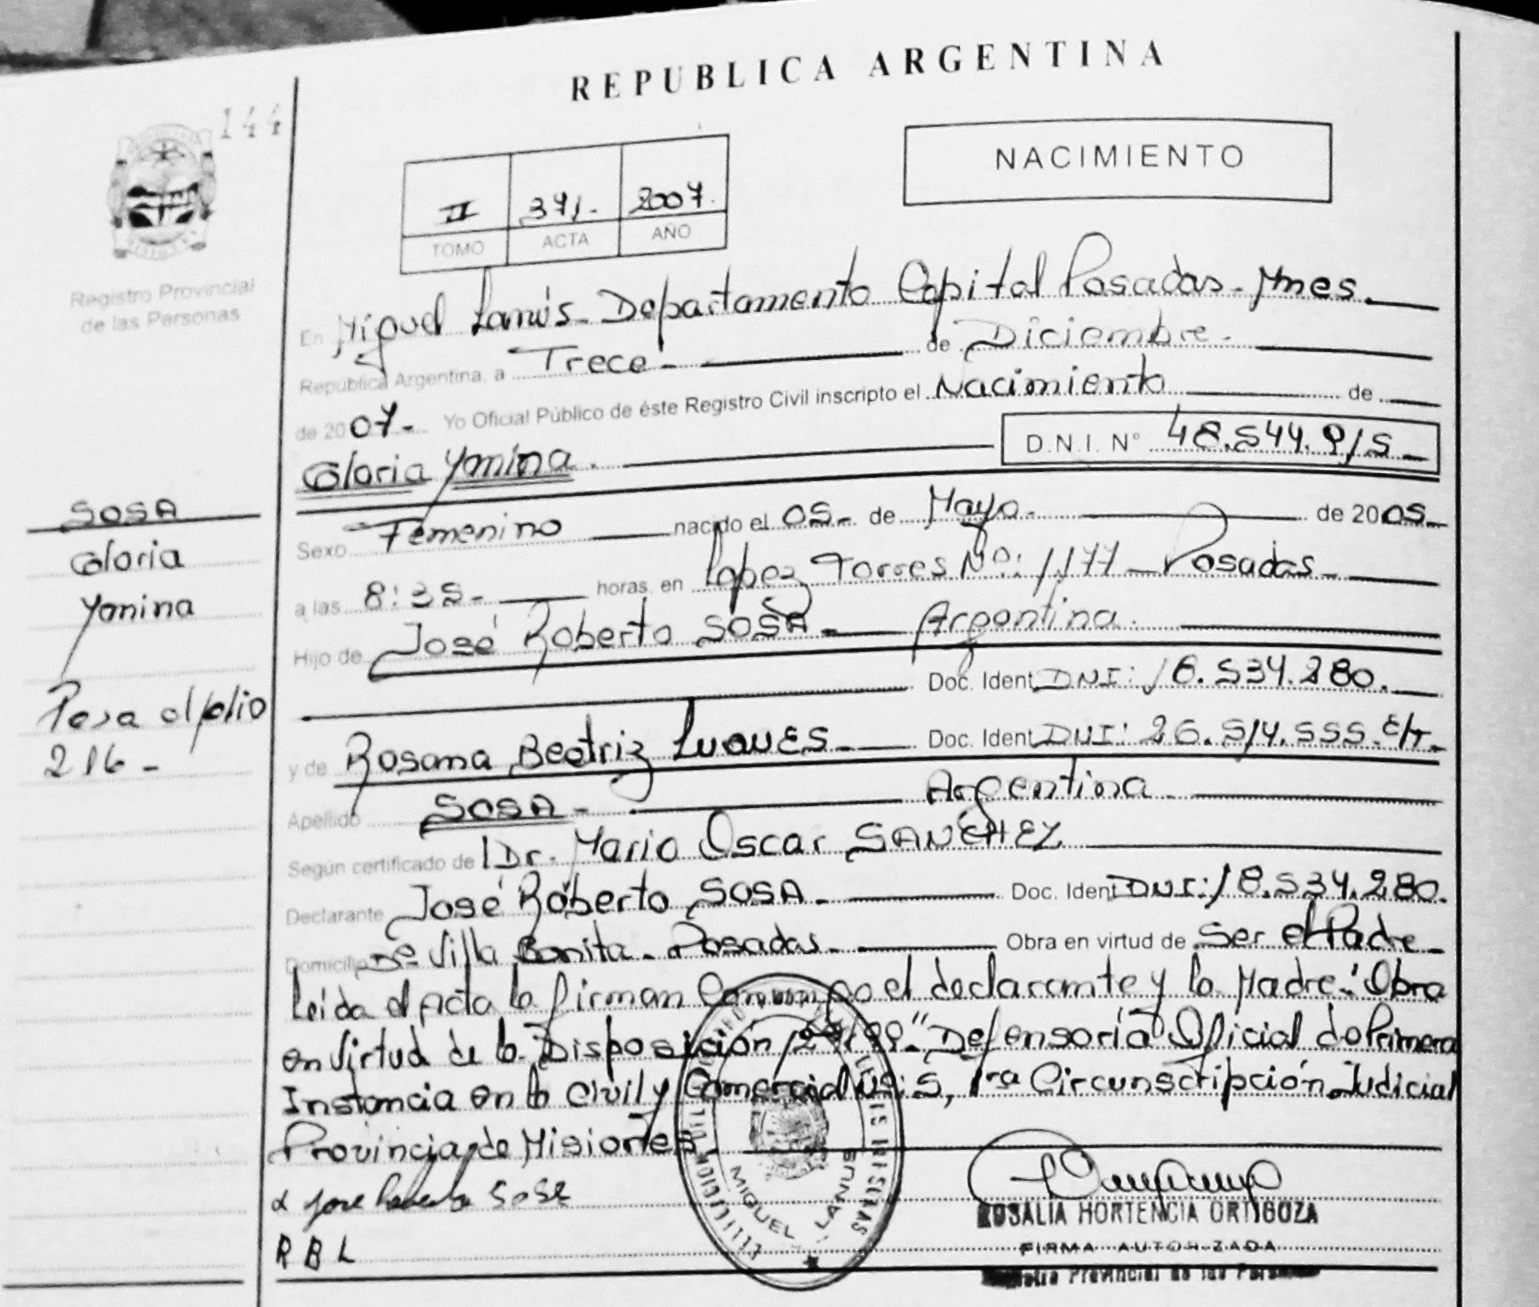 REPUBLICA ARGENTINA
144
NACIMIENTO
II 371.- 2007.
TOMO ACTA AÑO
Registro Provincial
de las Personas
En Miguel Lanús.- Departamento Capital Posadas.- Mnes.
República Argentina, a Trece.- de Diciembre.-
de 2007.- Yo Oficial Público de éste Registro Civil inscripto el Nacimiento de
Gloria Yanina. D.N.I. N° 48.544.915.-
SOSA
Gloria
Yanina
Pasa al folio
216.-
Sexo Femenino nacido el 05.- de Mayo. de 2005.-
a las 8:35.- horas, en López Torres Nº: 1.177.- Posadas.-
Hijo de José Roberto SOSA.- Argentina.
Doc. Ident. DNI: 18.534.280.
y de Rosana Beatriz LUQUES.- Doc. Ident. DNI: 26.514.555. C/T.-
Apellido SOSA.- Argentina.
Según certificado de Dr. Mario Oscar SANCHEZ
Declarante José Roberto SOSA.- Doc. Ident. DNI: 18.534.280.
Domicilio Bº Villa Bonita.- Posadas.- Obra en virtud de Ser el Padre.-
Leída el Acta la firman Conmigo el declarante y la Madre.- Obra
en Virtud de la Disposición "Defensoría Oficial de Primera
Instancia en lo Civil y Comercial Nº: 5, 1ra Circunscripción Judicial
Provincia de Misiones.
x Jose Roberto Sosa
R B L
MIGUEL LANUS
ROSALIA HORTENCIA ORTIGOZA
FIRMA AUTORIZADA
Registro Provincial de las Personas